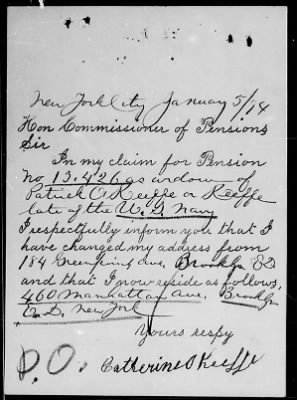 New York City January 5/14
Hon Commissioner of Pensions
Sir
In my claim for Pension
No 13.426 as widow of
Patrick O Keeffe or Keeffe
late of the U.S. Navy
I respectfully inform you that I
have changed my address from
184 Greenpoint ave. Brooklyn ED
and that I now reside as follows,
460 Manhattan Ave. Brooklyn
E.D. New York
Yours respy
P.O. Catherine O Keeffe